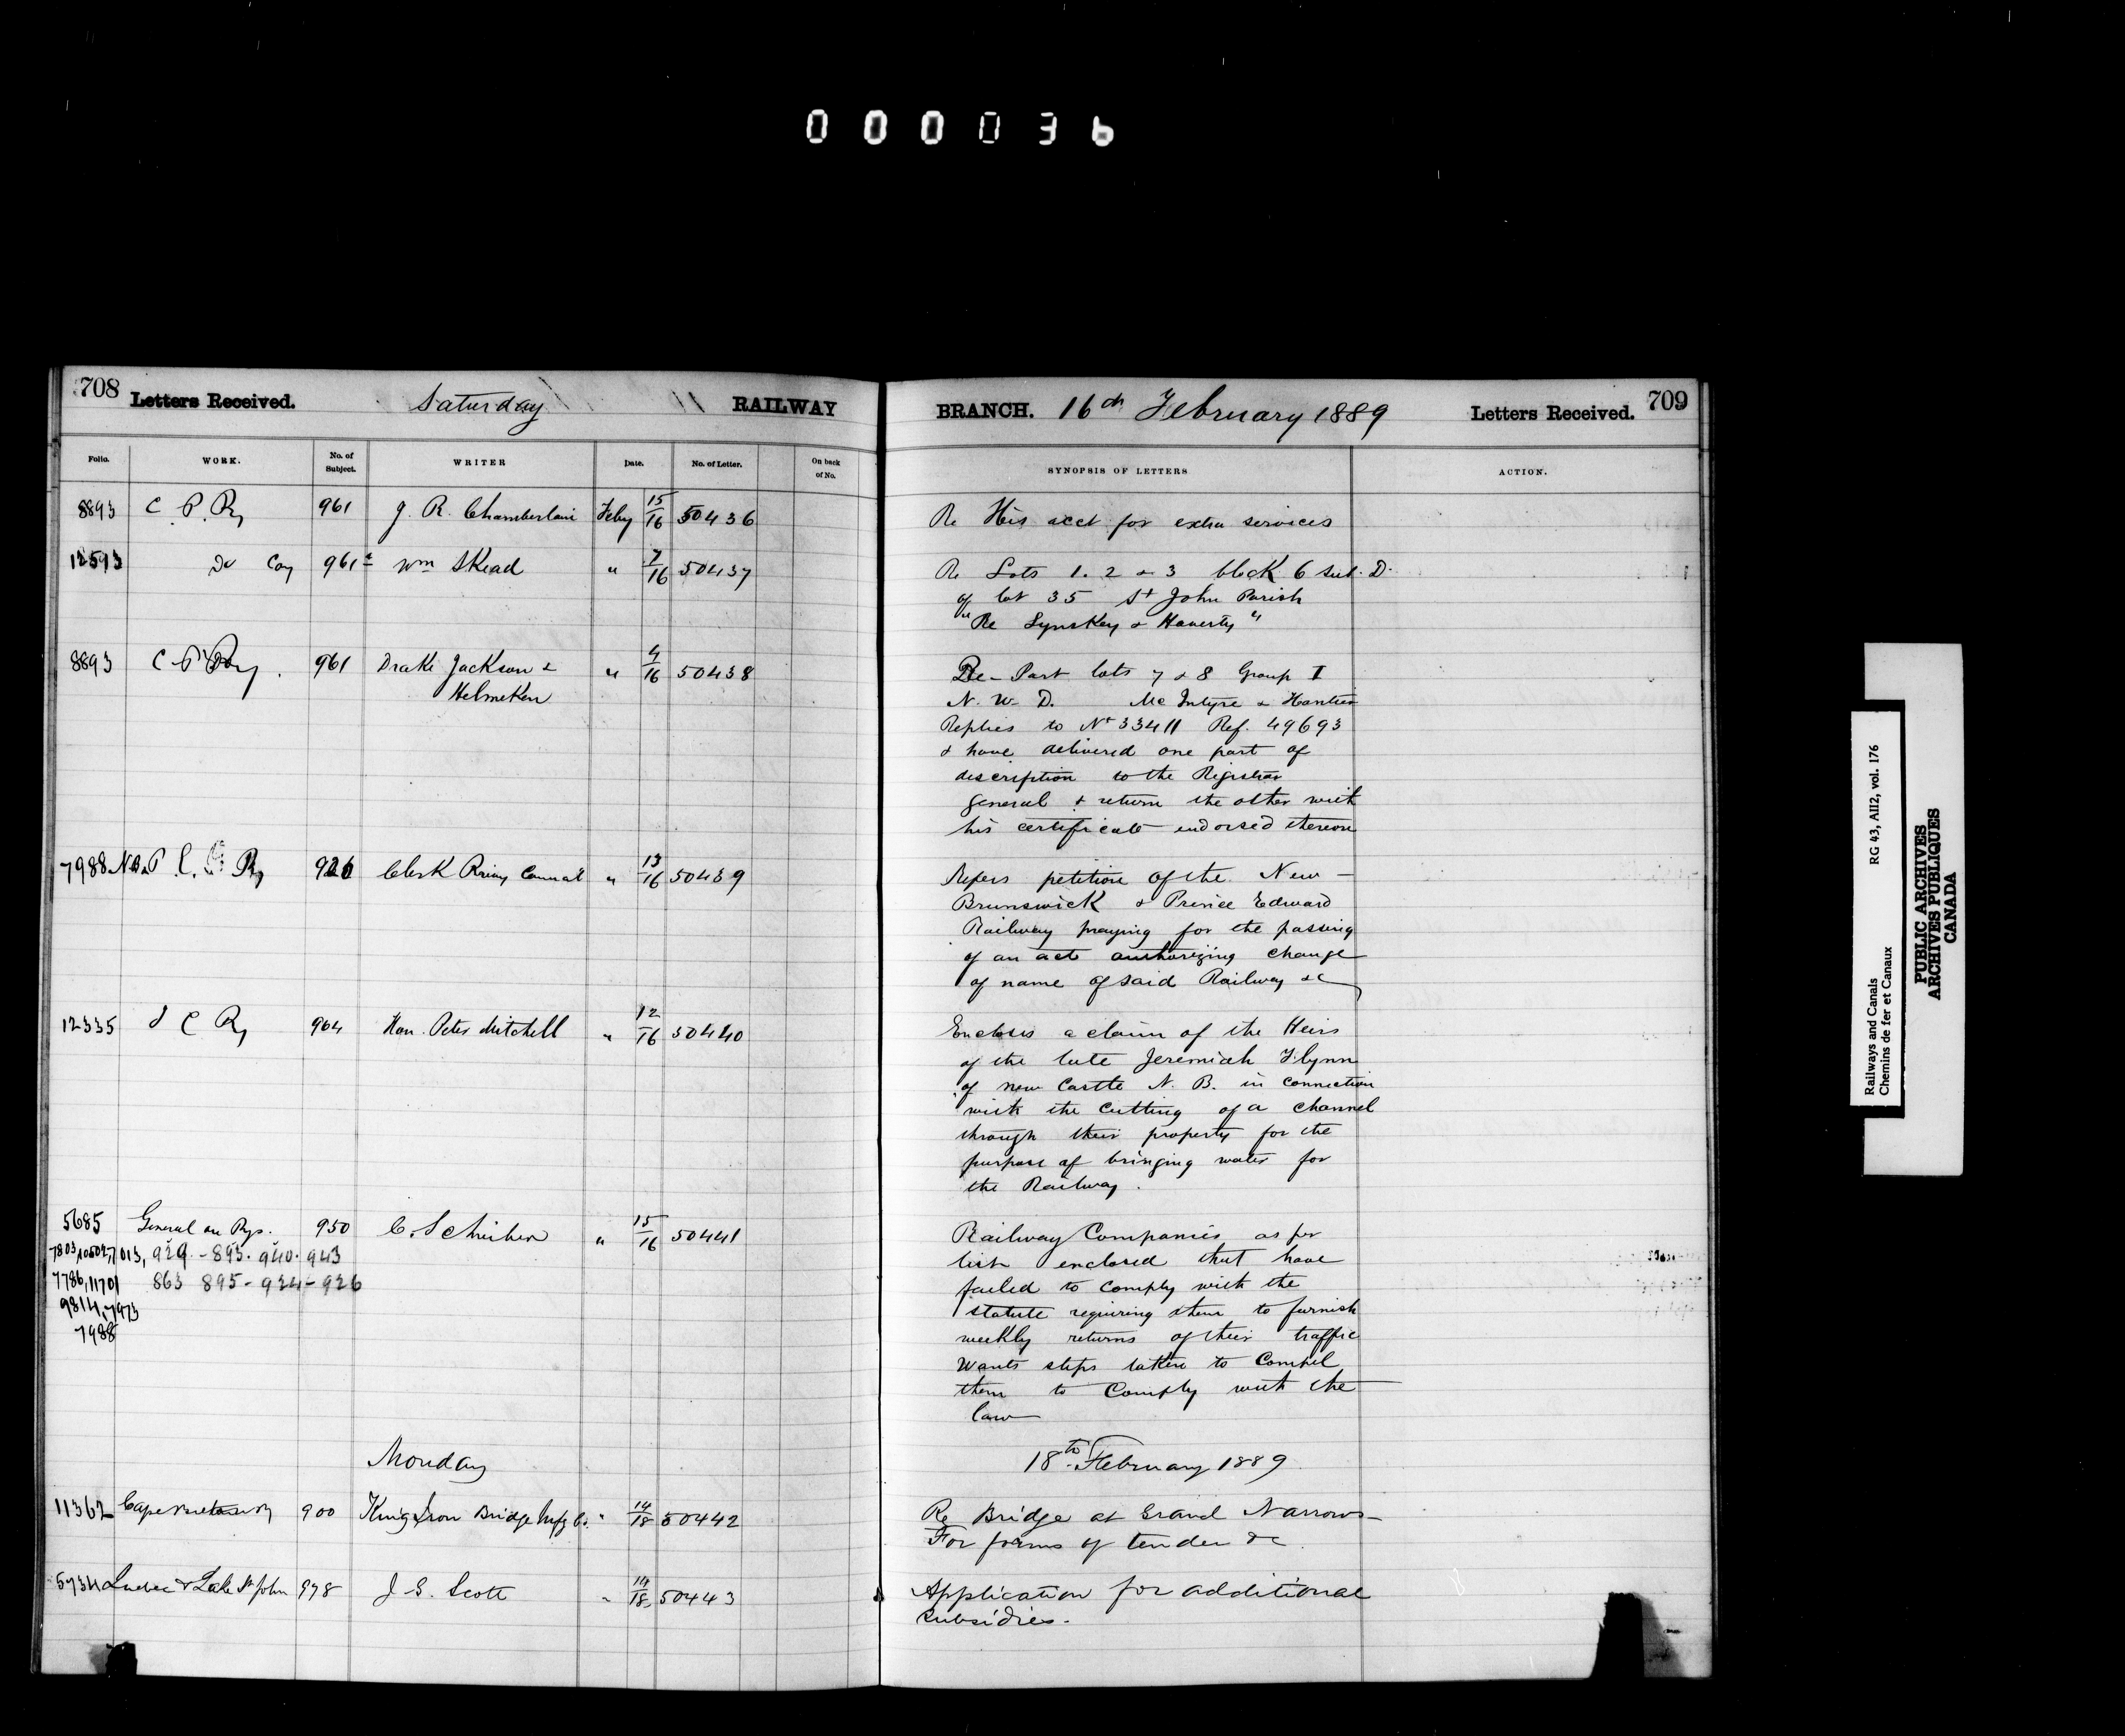 000036
708 Letters Received. Saturday RAILWAY
BRANCH. 16th February 1889 Letters Received. 709
Folio. WORK. No. of Subject. WRITER Date. No. of Letter. On back of No.
SYNOPSIS OF LETTERS ACTION.
8893 C. P. Ry 961 J. R. Chamberlain Feby 15/16 50436
Re His acct for extra services
12593 Do Coy 961 Wm Skead " 7/16 50437
Re Lots 1. 2 & 3 block 6 sub. D.
of lot 35 St John Parish
"Re Lynskey & Haverty"
8893 C P Ry. 961 Drake Jackson & " 4/16 50438
Helmeken
Re - Part lots 7 & 8 Group I
N. W. D. McIntyre &
Replies to No 33411 Ref. 49693
& have delivered one part of
description to the Registrar
General & return the other with
his certificate endorsed thereon
7988 926 Clerk Privy Council " 13/16 50439
Refers petition of the New
Brunswick & Prince Edward
Railway praying for the passing
of an act authorizing change
of name of said Railway &c
12335 I C Ry 964 Hon. Peter Mitchell " 12/16 50440
Encloses a claim of the Heirs
of the late Jeremiah Flynn
of New Castle N. B. in connection
with the cutting of a channel
through their property for the
purpose of bringing water for
the Railway.
5685 General on Rys. 950 C. Schreiber " 15/16 50441
7803, 7013, 929 - 893. 940. 943
7786, 11701 863 895 - 924 - 926
9814, 7973
7988
Railway Companies as per
list enclosed that have
failed to comply with the
statute requiring them to furnish
weekly returns of their traffic
Wants steps taken to Compel
them to Comply with the
law
Monday 18th February 1889
11362 Cape Breton Ry 900 King Iron Bridge Mfg Co. " 14/18 50442
Re Bridge at Grand Narrows -
For forms of tender &c
5734 Quebec & Lake St John 978 J. G. Scott " 14/18 50443
Application for additional
subsidies.
Railways and Canals RG 43, AII2, vol. 176
Chemins de fer et Canaux
PUBLIC ARCHIVES
ARCHIVES PUBLIQUES
CANADA